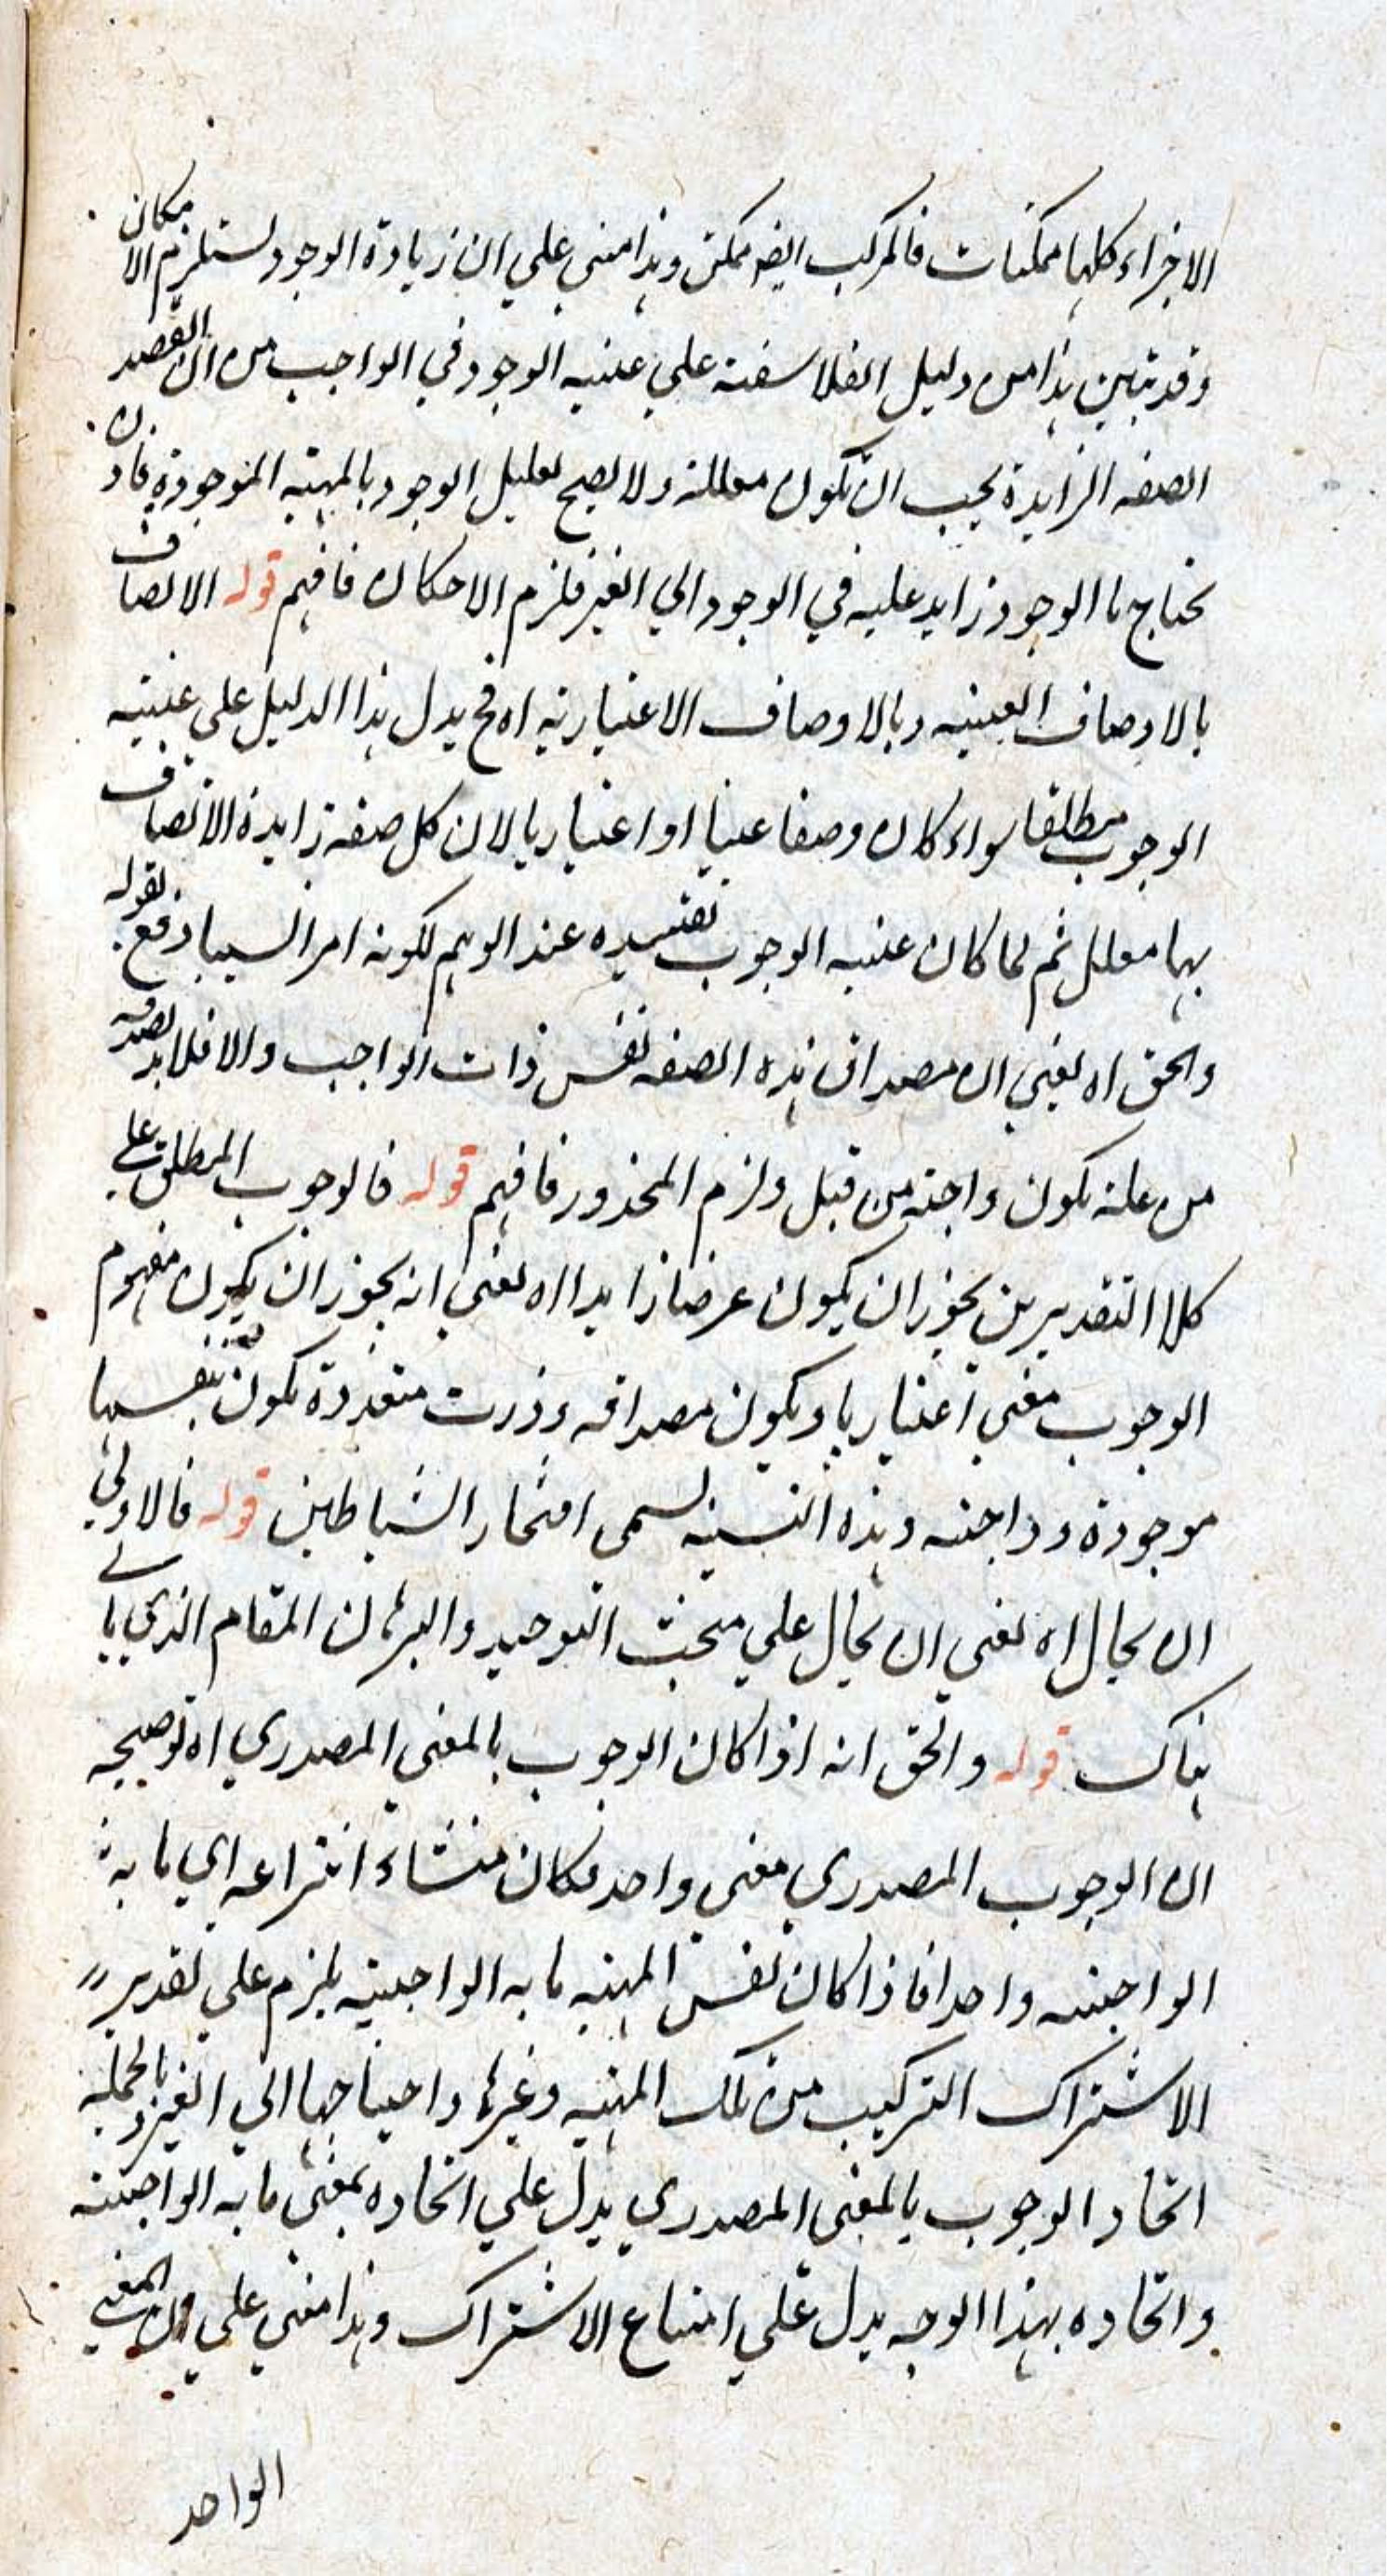 الاجزاء كلها ممكنات فالمركب ايضه ممكن وهذا مبني علي ان زيادة الوجود يستلزم الامكان
وقد تبين هذا من دليل الفلاسفة علي عينيه الوجود في الواجب من ان
الصفه الزايدة يجب ان تكون معللة ولا يصح تعليل الوجود بالمهية الموجودة فاذن
يحتاج ما الوجود زايد عليه في الوجود الي الغير فلزم الامكان فافهم قوله الاتصاف
بالاوصاف العينيه وبالاوصاف الاعتباريه اه فح يدل هذا الدليل علي عينيه
الوجوب مطلقا سواء كان وصفا عينيا او اعتباريا لان كل صفه زايدة الاتصاف
بها معلل ثم لما كان عينيه الوجوب عند الوهم لكونه امرا نسبيا دفع بقوله
والحق اه يعني ان مصداق هذه الصفه نفس ذات الواجب والا فلا بد
من علة تكون واجبة من قبل ولزم المحذور فافهم قوله فالوجوب المطلق علي
كلا التقديرين يجوز ان يكون عرضا زايدا اه يعني انه يجوز ان يكون مفهوم
الوجوب معني اعتباريا ويكون مصداقه ذوات متعددة تكون بنفسها
موجودة وواجبه وهذه الشبهة يسمي افتخار الشياطين قوله فالاولي
ان يحال اه يعني ان يحال علي مبحث التوحيد والبرهان المقام الذي ياتي
هناك قوله والحق انه اذا كان الوجوب بالمعني المصدري اه توضيحه
ان الوجوب المصدري معني واحد فكان منشاء انتزاعه اي ما به
الواجبيه واحدا فاذا كان نفس المهيه ما به الواجبيه يلزم علي تقدير
الاشتراك التركيب من تلك المهيه وغيرها واحتياجها الي الغير وبالجملة
اتحاد الوجوب بالمعني المصدري يدل علي اتحاده بمعني ما به الواجبيه
واتحاده بهذا الوجه يدل علي امتناع الاشتراك وهذا مبني علي ان المعني
الواحد